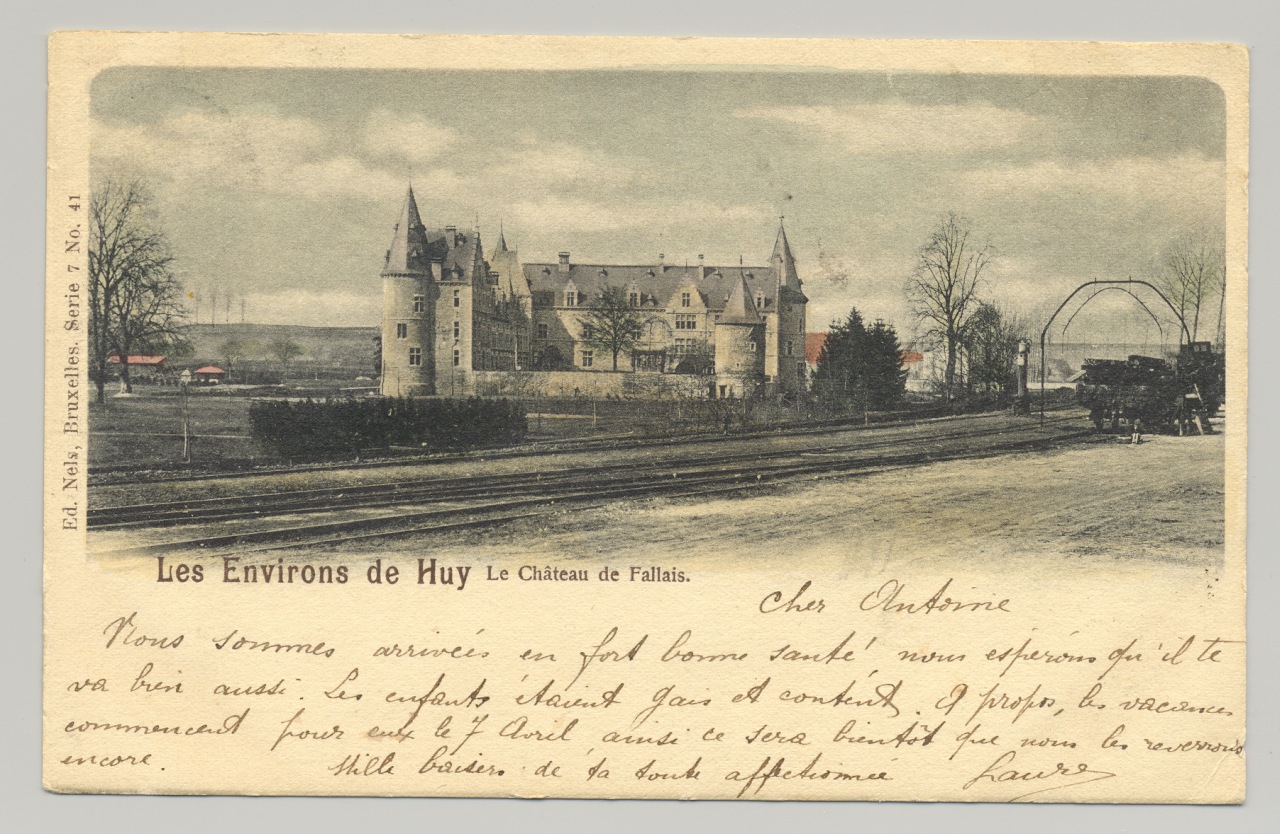 Ed. Nels, Bruxelles. Serie 7 No. 41
Les Environs de Huy Le Château de Fallais.
Cher Antoine
Nous sommes arrivées en fort bonne santé, nous espérons qu'il te
va bien aussi. Les enfants étaient gais et contents. A propos, les vacances
commencent pour eux le 7 Avril, ainsi ce sera bientôt que nous les reverrons
encore. Mille baisers de ta toute affectionnée Laure